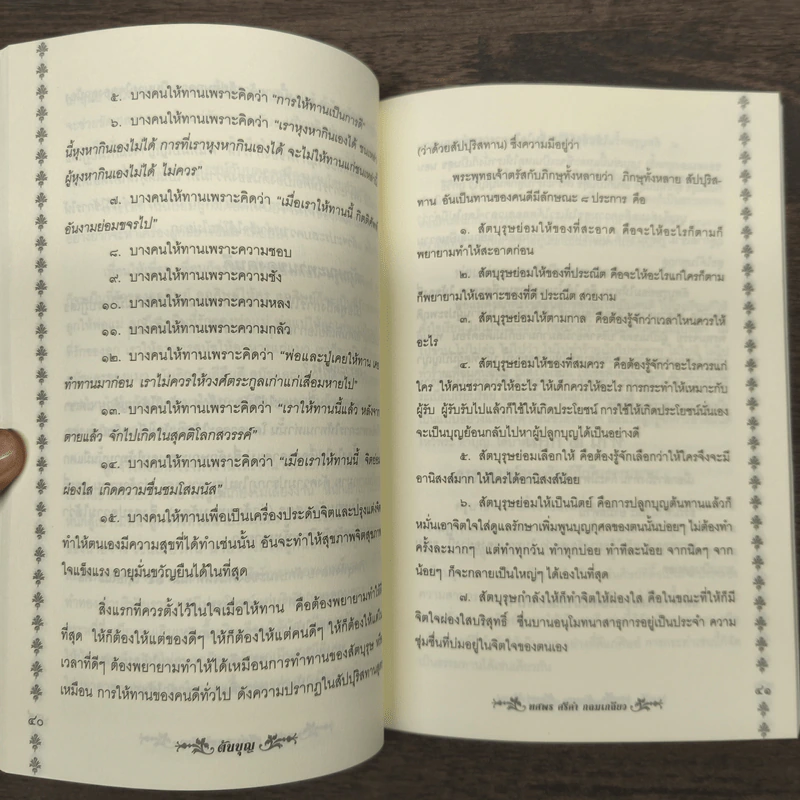 ๕. บางคนให้ทานเพราะคิดว่า "การให้ทานเป็นการดี"
๖. บางคนให้ทานเพราะคิดว่า "เราหุงหากินเองได้
นี้หุงหากินเองไม่ได้ การที่เราหุงหากินเองได้ จะไม่ให้ทานแก่
ผู้หุงหากินเองไม่ได้ ไม่ควร"
๗. บางคนให้ทานเพราะคิดว่า "เมื่อเราให้ทานนี้ กิตติศัพท์
อันงามย่อมขจรไป"
๘. บางคนให้ทานเพราะความชอบ
๙. บางคนให้ทานเพราะความชัง
๑๐. บางคนให้ทานเพราะความหลง
๑๑. บางคนให้ทานเพราะความกลัว
๑๒. บางคนให้ทานเพราะคิดว่า "พ่อและปู่เคยให้ทาน เคย
ทำทานมาก่อน เราไม่ควรให้วงศ์ตระกูลเก่าแก่เสื่อมหายไป"
๑๓. บางคนให้ทานเพราะคิดว่า "เราให้ทานนี้แล้ว หลังจาก
ตายแล้ว จักไปเกิดในสุคติโลกสวรรค์"
๑๔. บางคนให้ทานเพราะคิดว่า "เมื่อเราให้ทานนี้ จิตย่อม
ผ่องใส เกิดความชื่นชมโสมนัส"
๑๕. บางคนให้ทานเพื่อเป็นเครื่องประดับจิตและปรุงแต่งจิต
ทำให้ตนเองมีความสุขที่ได้ทำเช่นนั้น อันจะทำให้สุขภาพจิตสุขภาพ
ใจแข็งแรง อายุมั่นขวัญยืนได้ในที่สุด
สิ่งแรกที่ควรตั้งไว้ในใจเมื่อให้ทาน คือต้องพยายามทำให้ดี
ที่สุด ให้ก็ต้องให้แต่ของดีๆ ให้ก็ต้องให้แต่คนดีๆ ให้ก็ต้องให้แต่ใน
เวลาที่ดีๆ ต้องพยายามทำให้ได้เหมือนการทำทานของสัตบุรุษ
เหมือน การให้ทานของคนดีทั่วไป ดังความปรากฏในสัปปุริสทานสูตร
๔๐
ต้นบุญ
(ว่าด้วยสัปปุริสทาน) ซึ่งความมีอยู่ว่า
พระพุทธเจ้าตรัสกับภิกษุทั้งหลายว่า ภิกษุทั้งหลาย สัปปุริส-
ทาน อันเป็นทานของคนดีมีลักษณะ ๘ ประการ คือ
๑. สัตบุรุษย่อมให้ของที่สะอาด คือจะให้อะไรก็ตามก็
พยายามทำให้สะอาดก่อน
๒. สัตบุรุษย่อมให้ของที่ประณีต คือจะให้อะไรแก่ใครก็ตาม
ก็พยายามให้เฉพาะของที่ดี ประณีต สวยงาม
๓. สัตบุรุษย่อมให้ตามกาล คือต้องรู้จักว่าเวลาไหนควรให้
อะไร
๔. สัตบุรุษย่อมให้ของที่สมควร คือต้องรู้จักว่าอะไรควรแก่
ใคร ให้คนชราควรให้อะไร ให้เด็กควรให้อะไร การกระทำให้เหมาะกับ
ผู้รับ ผู้รับรับไปแล้วก็ใช้ให้เกิดประโยชน์ การใช้ให้เกิดประโยชน์นั่นเอง
จะเป็นบุญย้อนกลับไปหาผู้ปลูกบุญได้เป็นอย่างดี
๕. สัตบุรุษย่อมเลือกให้ คือต้องรู้จักเลือกว่าให้ใครจึงจะมี
อานิสงส์มาก ให้ใครได้อานิสงส์น้อย
๖. สัตบุรุษย่อมให้เป็นนิตย์ คือการปลูกบุญต้นทานแล้วก็
หมั่นเอาจิตใจใส่ดูแลรักษาเพิ่มพูนบุญกุศลของตนนั้นบ่อยๆ ไม่ต้องทำ
ครั้งละมากๆ แต่ทำทุกวัน ทำทุกบ่อย ทำทีละน้อย จากนิดๆ จาก
น้อยๆ ก็จะกลายเป็นใหญ่ๆ ได้เองในที่สุด
๗. สัตบุรุษกำลังให้ก็ทำจิตให้ผ่องใส คือในขณะที่ให้ก็มี
จิตใจผ่องใสบริสุทธิ์ ชื่นบานอนุโมทนาสาธุการอยู่เป็นประจำ ความ
ชุ่มชื่นที่บ่มอยู่ในจิตใจของตนเอง
ทสพร ศรีคำ กลมเกลียว
๔๑